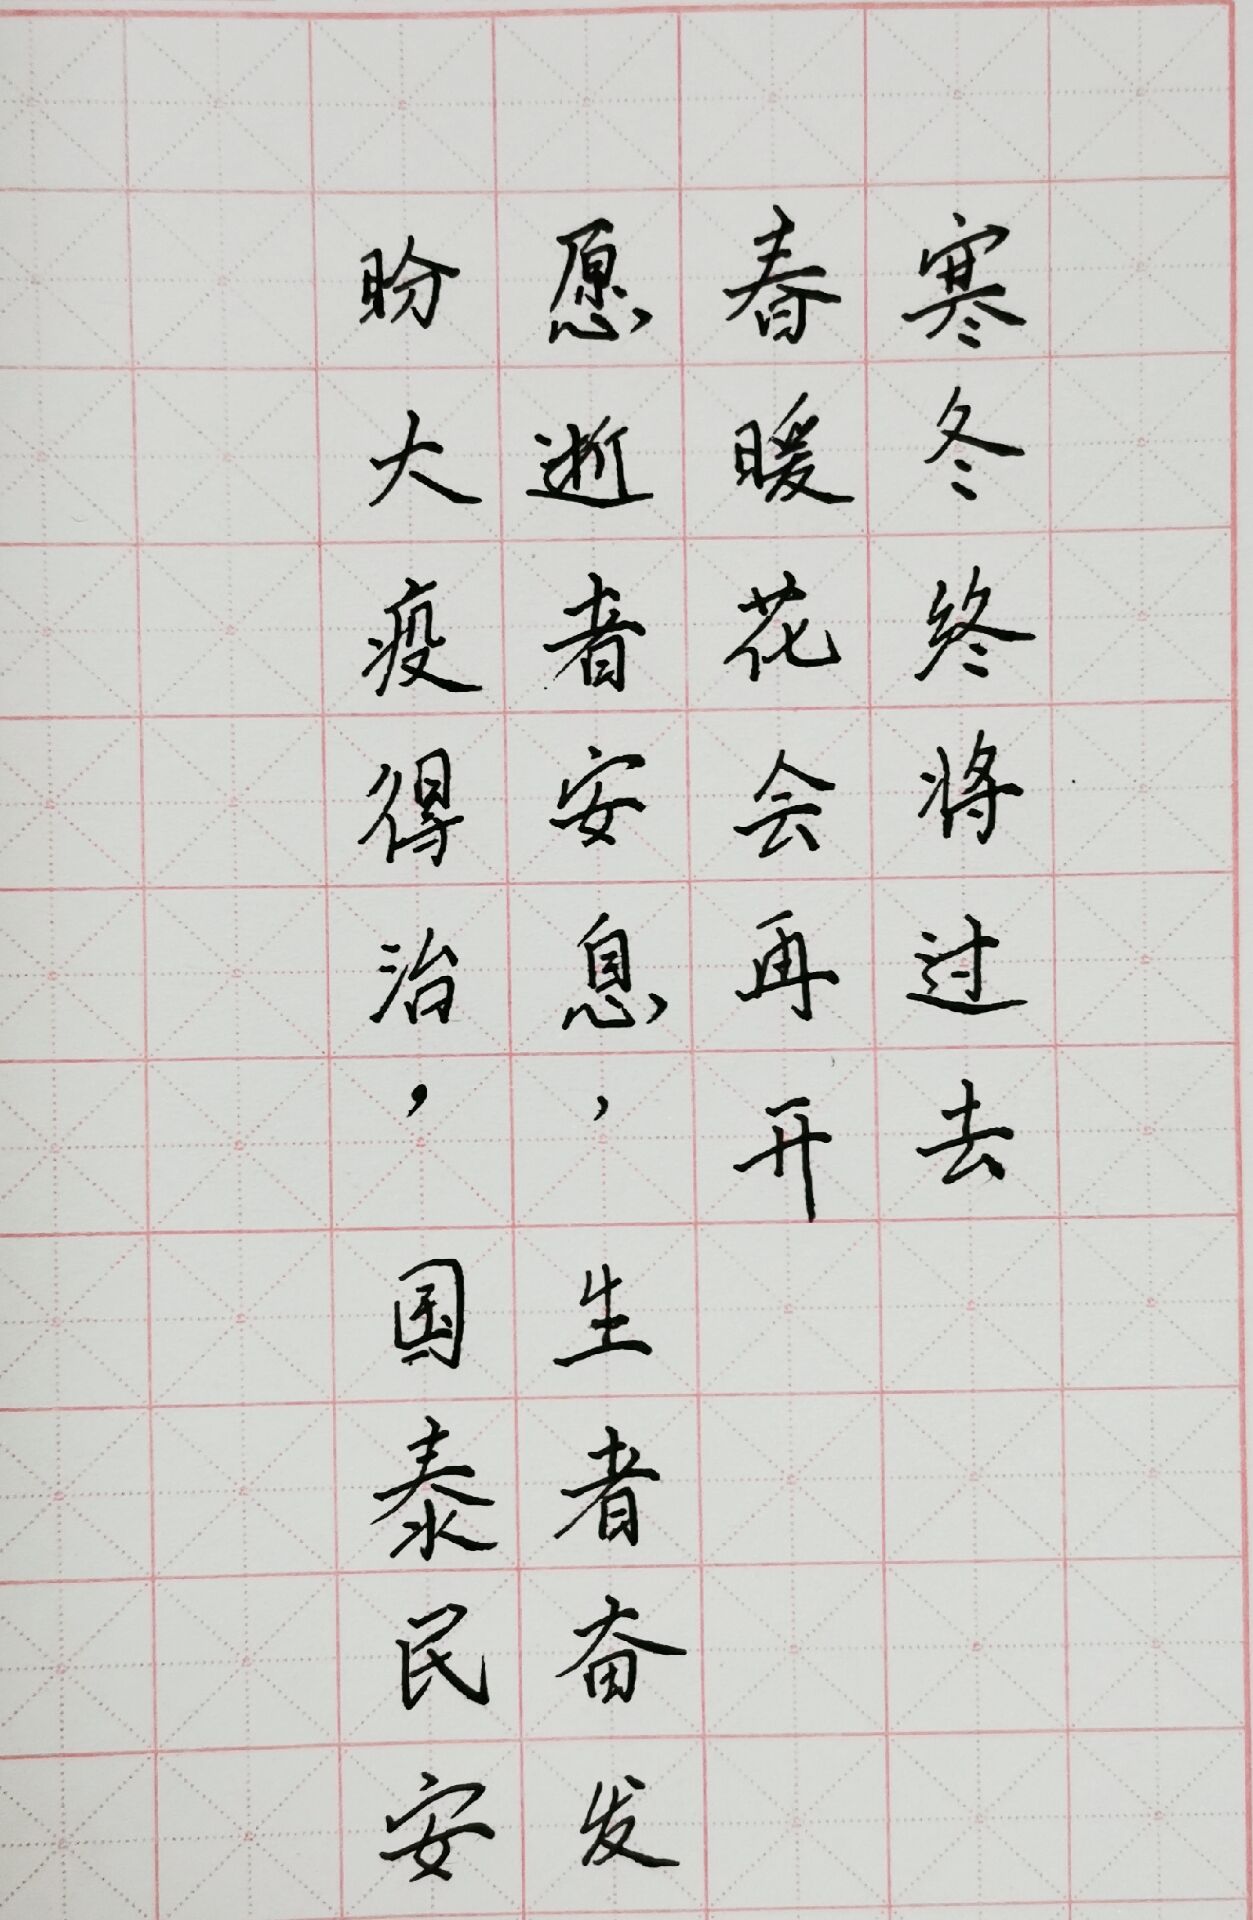 寒冬终将过去
春暖花会再开
愿逝者安息，生者奋发
盼大疫得治，国泰民安